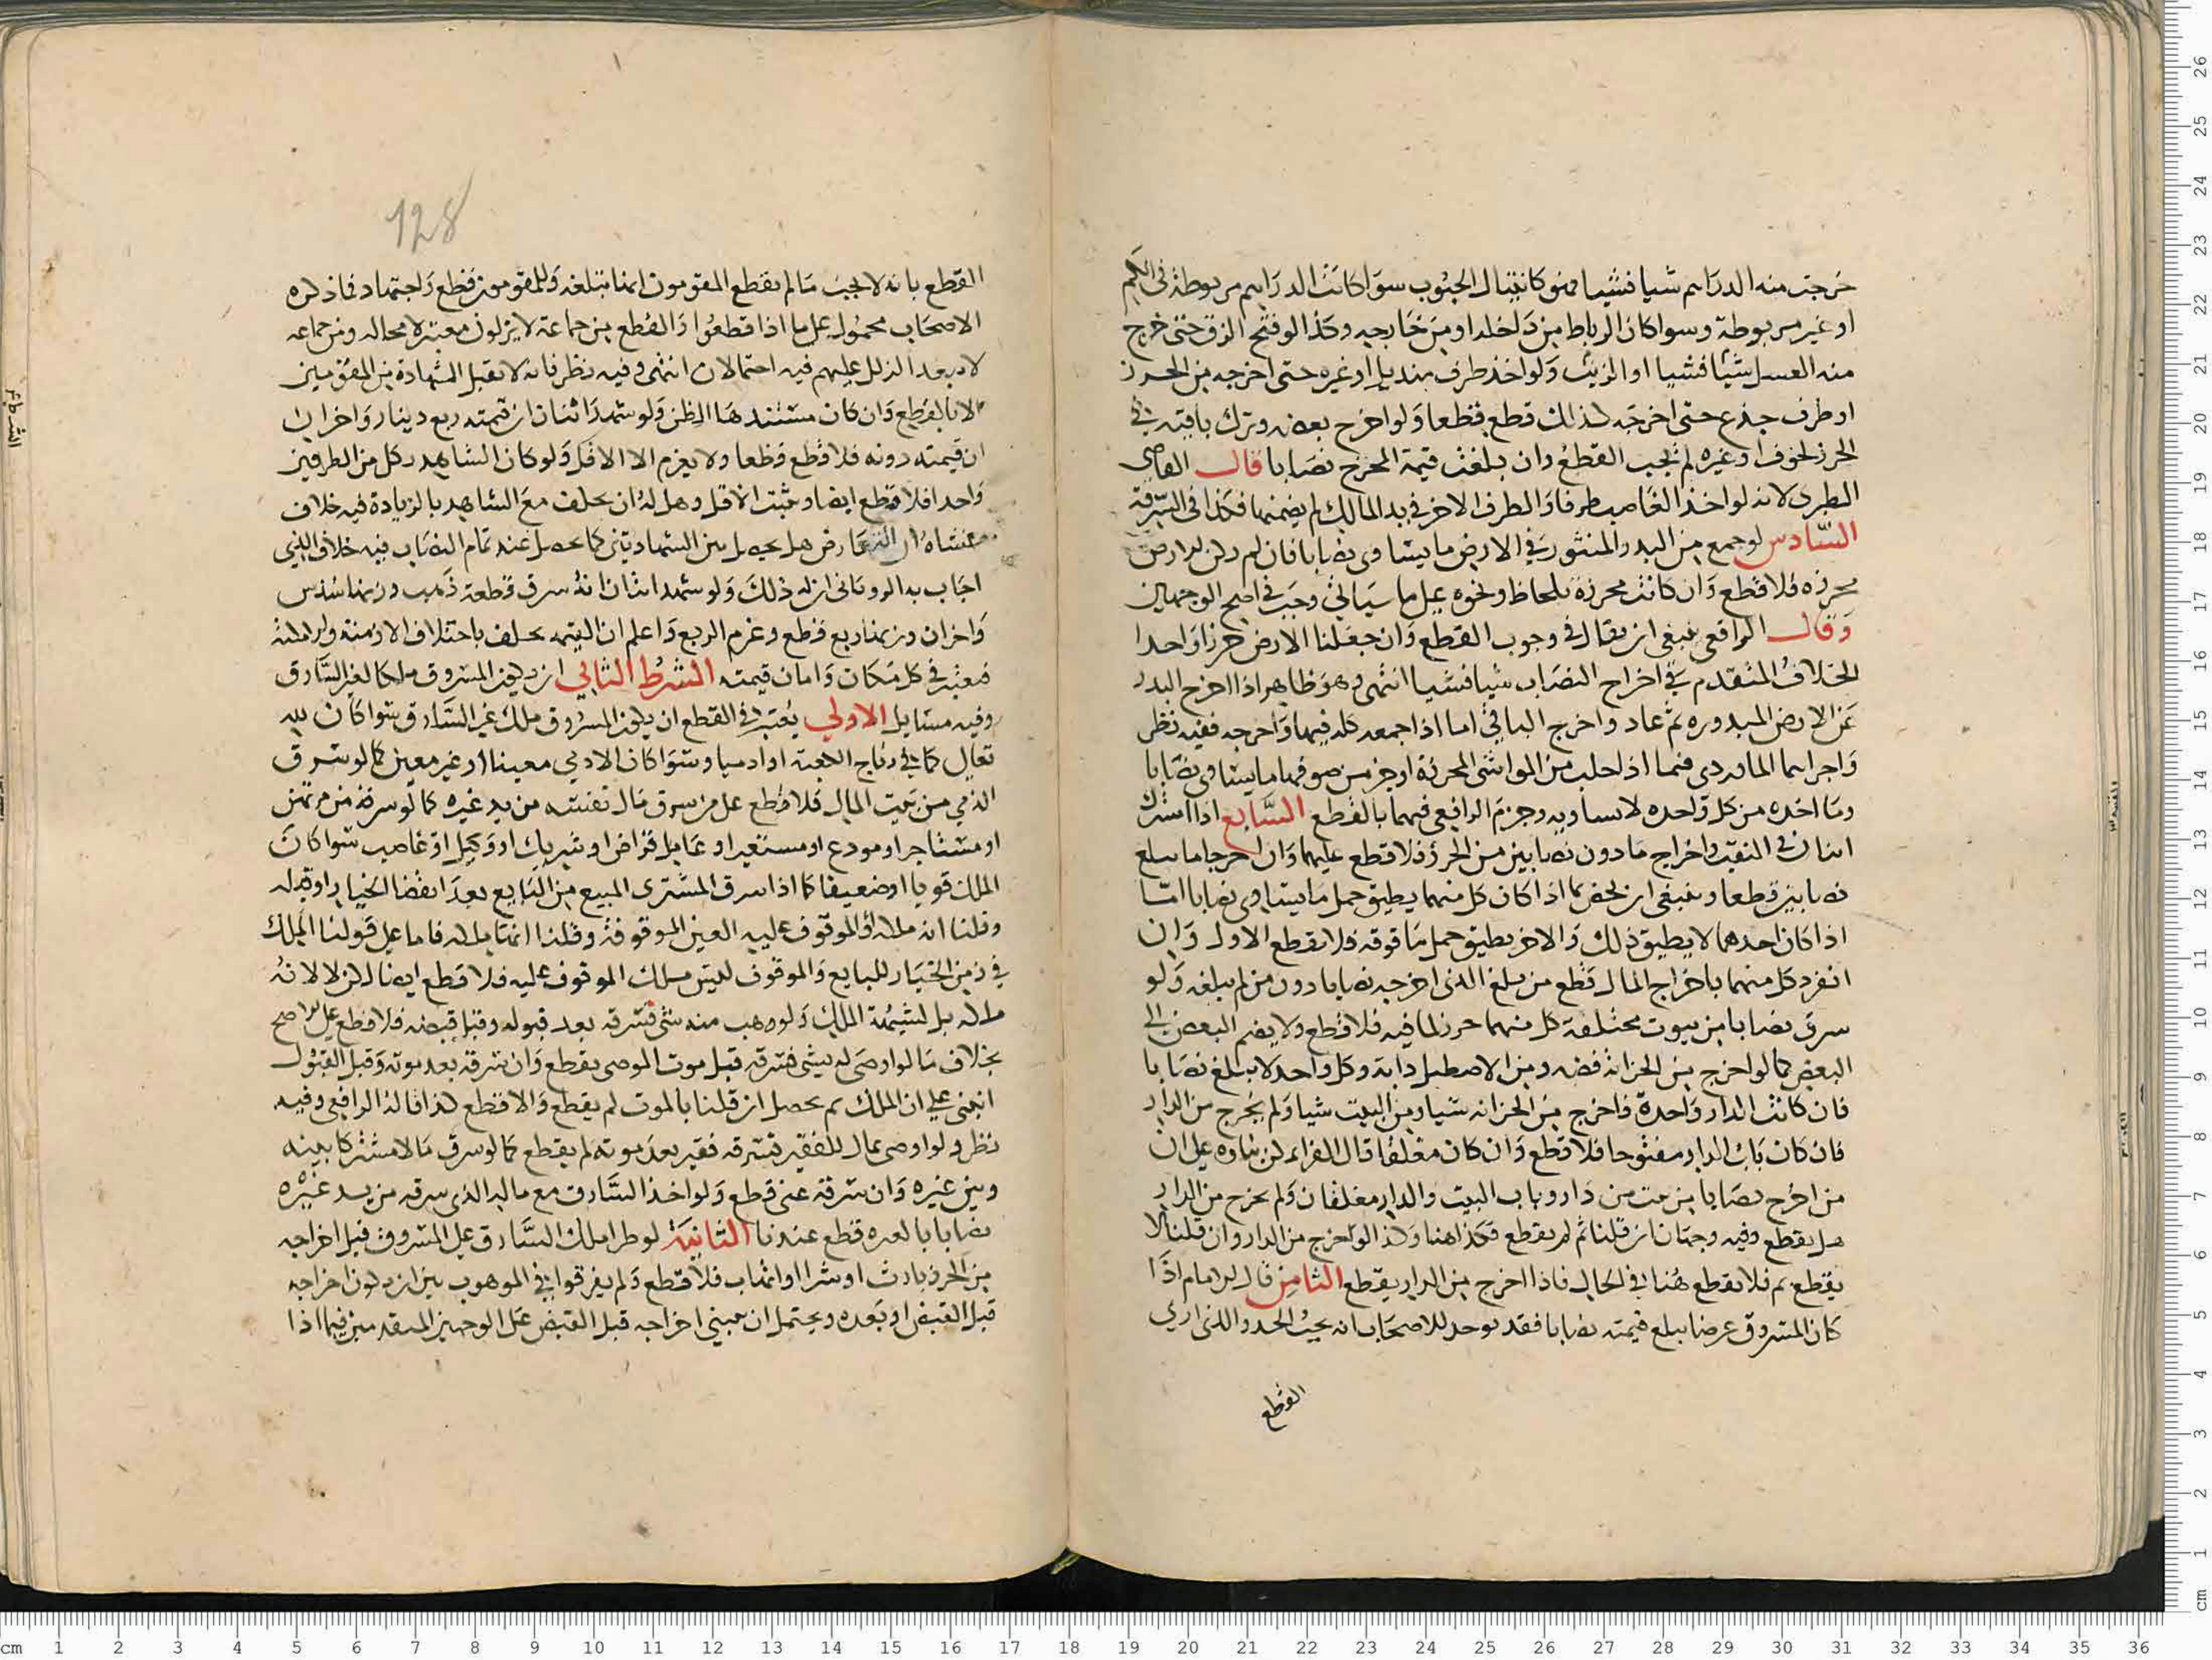 خرجت منه الدراهم شيا فشيا فهو كانثيال الحبوب سوا كانت الدراهم مربوطة في الكم
او غير مربوطة وسوا كان الرباط من داخله او من خارجه وكذا لو فتح الزق حتى خرج
منه العسل شيا فشيا او الزيت ولو اخذ طرف منديل او غيره حتى اخرجه من الحرز
او طرف جذع حتى اخرجه كذلك قطع قطعا ولو اخرج بعضه وترك باقيه في
الحرز لخوف او غيره لم يجب القطع وان بلغت قيمة المخرج نصابا قال القاضي
الطبري لانه لو اخذ الغاصب طرفا والطرف الاخر في يد المالك لم يضمنها فكذا في السرقة
السادس لو جمع من البدر المنثور في الارض ما يساوي نصابا فان لم تكن الارض
محرزة فلا قطع وان كانت محرزة بلحاظ ونحوه على ما سياتي وجب في اصح الوجهين
وقال الرافعي ينبغي ان يقال في وجوب القطع وان جعلنا الارض حرزا واحدا
الخلاف المتقدم في اخراج النصاب شيا فشيا انتهى وهو ظاهر اذا اخرج البدر
عن الارض المبدوره ثم عاد واخرج الباقي اما اذا جمعه كله فيها واخرجه ففيه نظر
واجراهما الماوردي فيما اذا حلب من المواشي المحرزة او جز من صوفها ما يساوي نصابا
وما اخده من كل واحده لا يساويه وجزم الرافعي فيهما بالقطع السابع اذا اشترك
اثنان في النقب واخراج ما دون نصابين من الحرز فلا قطع عليهما وان اخرجا ما يبلغ
نصابين قطعا وينبغي ان يخص بما اذا كان كل منهما يطيق حمل ما يساوي نصابا امّا
اذا كان احدهما لا يطيق ذلك والاخر يطيق حمل ما فوقه فلا يقطع الاول وان
انفرد كل منهما باخراج المال قطع من بلغ الذي اخرجه نصابا دون من لم يبلغه ولو
سرق نصابا من بيوت مختلفة كل منهما حرز لما فيه فلا قطع ولا يضم البعض الى
البعض كما لو اخرج من الخزانة فضه ومن الاصطبل دابة وكل واحد لا يبلغ نصابا
فان كانت الدار واحدة فاخرج من الخزانه شيا ومن البيت شيا ولم يخرج من الدار
فان كان باب الدار مفتوحا فلا قطع وان كان مغلقا قال الفراء لكن بناوه على ان
من اخرج نصابا من بيت من دار وباب البيت والدار مغلقان ولم يخرج من الدار
هل يقطع وفيه وجهان ان قلنا ثم لم يقطع فكذا هنا وكذا لو اخرج من الدار وان قلنا لا
يقطع ثم فلا يقطع هنا في الحال فاذا اخرج من الدار يقطع الثامن قال الامام اذا
كان المسروق عرضا يبلغ قيمته نصابا فقد يوجد للاصحاب انه يجب الحد والذي اري
القطع
128
القطع بانه لا يجب ما لم يقطع المقومون انها تبلغه وللمقومون قطع واجتهاد فما ذكره
الاصحاب محمول على ما اذا قطعوا والقطع من جماعة لا يزلون معتبر لا محاله ومن جماعه
لا يبعد الزلل عليهم فيه احتمالان انتهى وفيه نظر فانه لا تقبل الشهادة من المقومين
الا بالقطع وان كان مستندها الظن ولو شهد اثنان ان قيمته ربع دينار واخران
ان قيمته دونه فلا قطع قطعا ولا يغرم الا الاقل ولو كان الشاهد بكل من الطرفين
واحدا فلا قطع ايضا ويثبت الاقل وهل له ان يحلف مع الشاهد بالزيادة فيه خلاف
منشاه ان التعارض هل يحصل بين الشهادتين كما يحصل عند تمام النصاب فيه خلاف الذي
اجاب به الروياني ان له ذلك ولو شهد اثنان انه سرق قطعة ذهب وزنها سدس
واخران وزنها ربع قطع وغرم الربع واعلم ان القيمه تختلف باختلاف الازمنة والامكنة
فيعتبر في كل مكان وزمان قيمته الشرط الثاني ان يكون المسروق ملكا لغير السارق
وفيه مسايل الاولى يعتبر في القطع ان يكون المسروق ملك غير السارق سوا كان لله
تعالى كما في رتاج الكعبة او ادميا وسوا كان الادمي معينا او غير معين كما لو سرق
الذمي من بيت المال فلا قطع على من سرق مال نفسه من يد غيره كما لو سرقه من مرتهن
او مستاجر او مودع او مستعير او عامل قراض او شريك او وكيل او غاصب سوا كان
الملك قويا او ضعيفا كما اذا سرق المشتري المبيع من البايع بعد انقضا الخيار او قبله
وقلنا انه ملكه والموقوف عليه العين الموقوفة وقلنا انها ملكه فاما على قولنا الملك
في زمن الخيار للبايع والموقوف ليس ملك الموقوف عليه فلا قطع ايضا لكن لا لانه
ملكه بل لشبهة الملك ولو وهب منه شي فسرقه بعد قبوله وقبل قبضه فلا قطع على الاصح
بخلاف ما لو اوصى له بشي فسرقه قبل موت الموصي يقطع وان سرقه بعد موته وقبل القبول
انبنى على ان الملك بم يحصل ان قلنا بالموت لم يقطع والا قطع كذا قاله الرافعي وفيه
نظر ولو اوصى بمال للفقير فسرقه فقير بعد موته لم يقطع كما لو سرق مالا مشتركا بينه
وبين غيره وان سرقه غني قطع ولو اخذ السارق مع ماله الذي سرقه من يد غيره
نصابا لغيره قطع عندنا الثانية لو طرا ملك السارق على المسروق قبل اخراجه
من الحرز بارث او شرا او اتهاب فلا قطع ولم يفرقوا في الموهوب بين ان يكون اخراجه
قبل القبض او بعده ويحتمل ان يبنى اخراجه قبل القبض على الوجهين المتقدمين فيما اذا